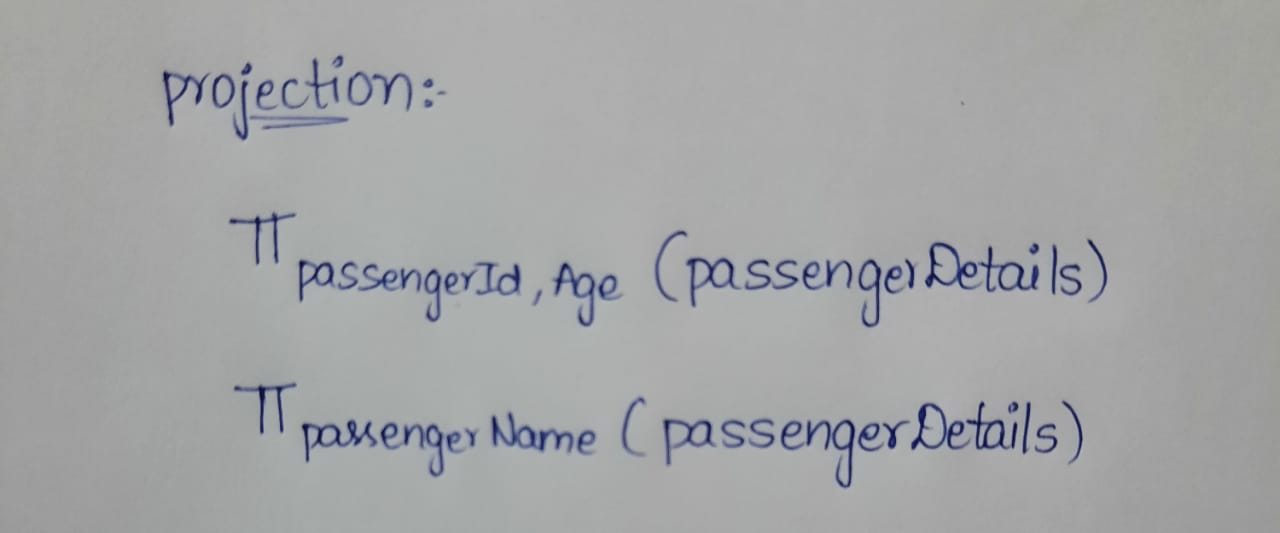 projection:-
π passengerId, Age (passengerDetails)
π passengerName (passengerDetails)